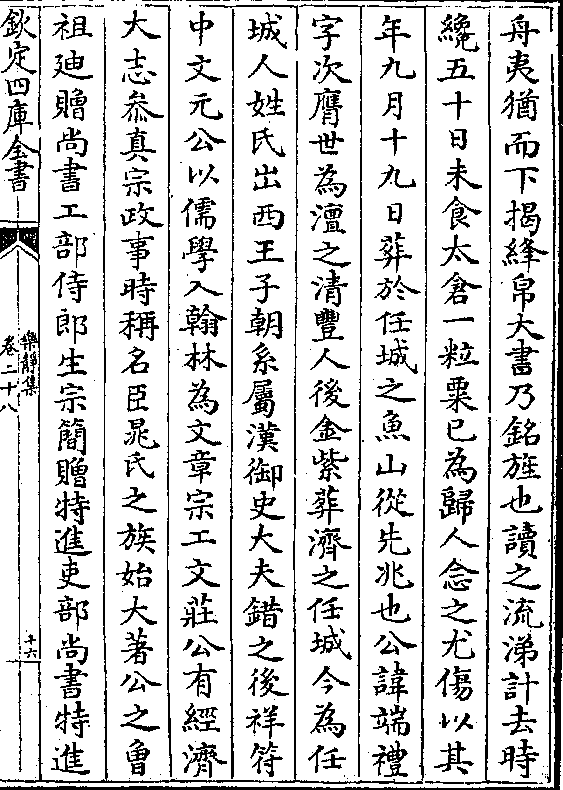 舟夷猶而下揭絳帛大書乃銘旌也讀之流涕計去時
纔五十日未食太倉一粒粟已為歸人念之尤傷以其
年九月十九日葬於任城之魚山從先兆也公諱端禮
字次膺世為澶之清豐人後金紫葬濟之任城今為任
城人姓氏出西王子朝系屬漢御史大夫錯之後祥符
中文元公以儒學入翰林為文章宗工文莊公有經濟
大志叅真宗政事時稱名臣晁氏之族始大著公之曾
祖迪贈尚書工部侍郎生宗簡贈特進吏部尚書特進
欽定四庫全書
樂靜集
卷二十八
十六